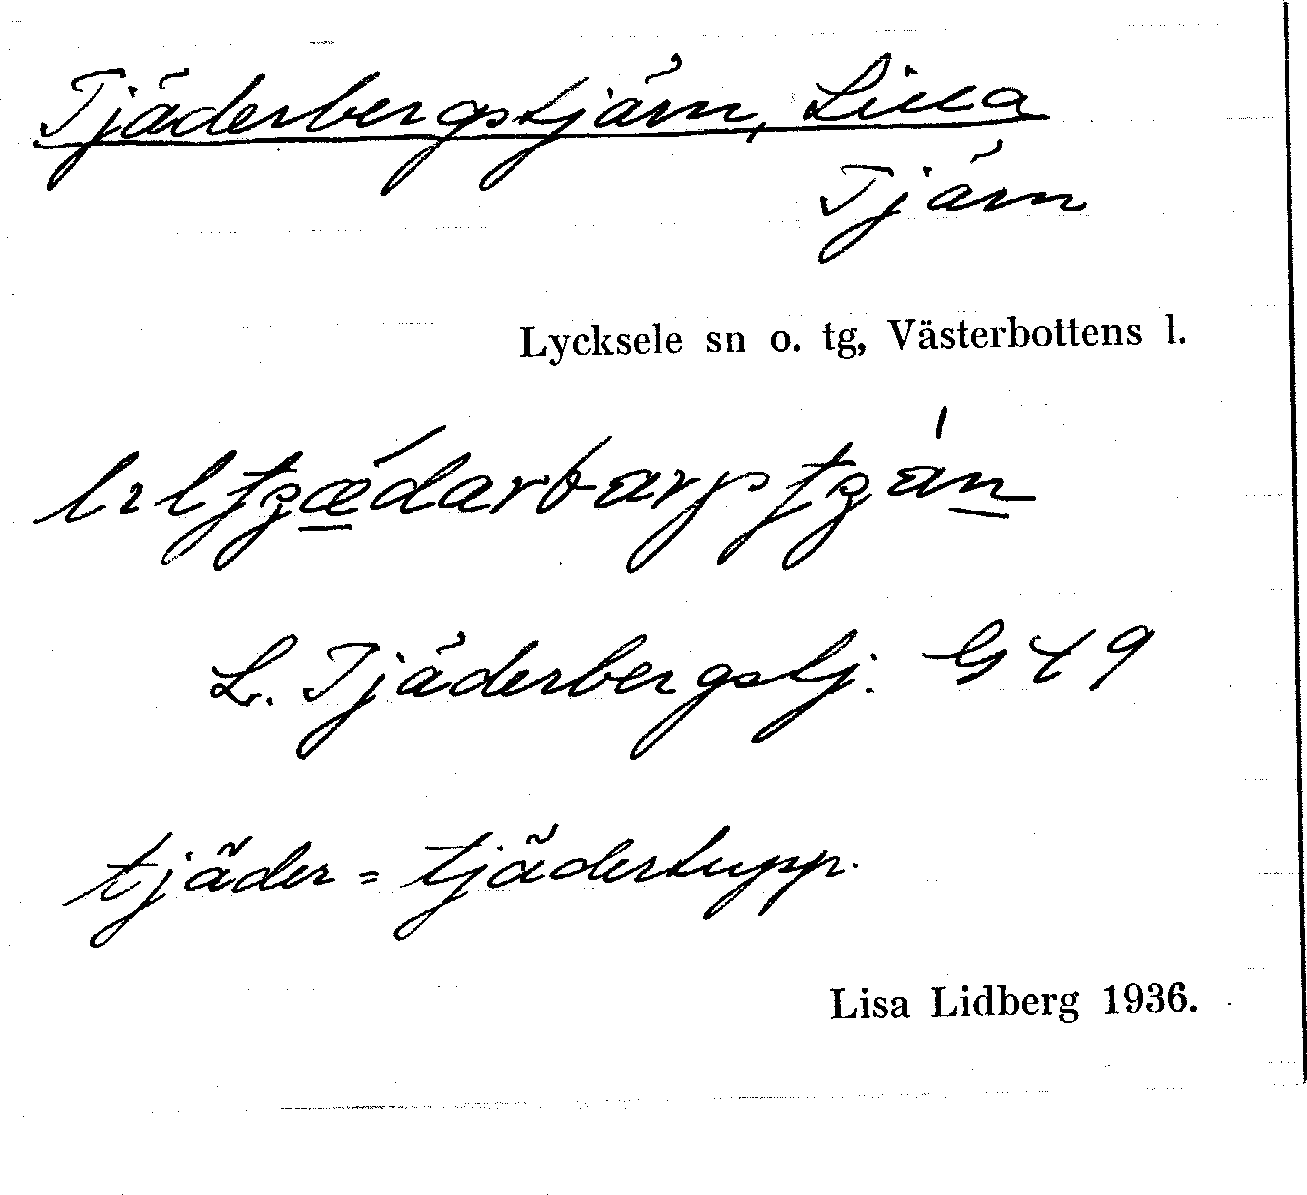 Tjäderbergstjärn, Lilla
Tjärn
Lycksele sn o. tg, Västerbottens l.
L. Tjäderbergstj. G 49
tjäder = tjädertupp.
Lisa Lidberg 1936.